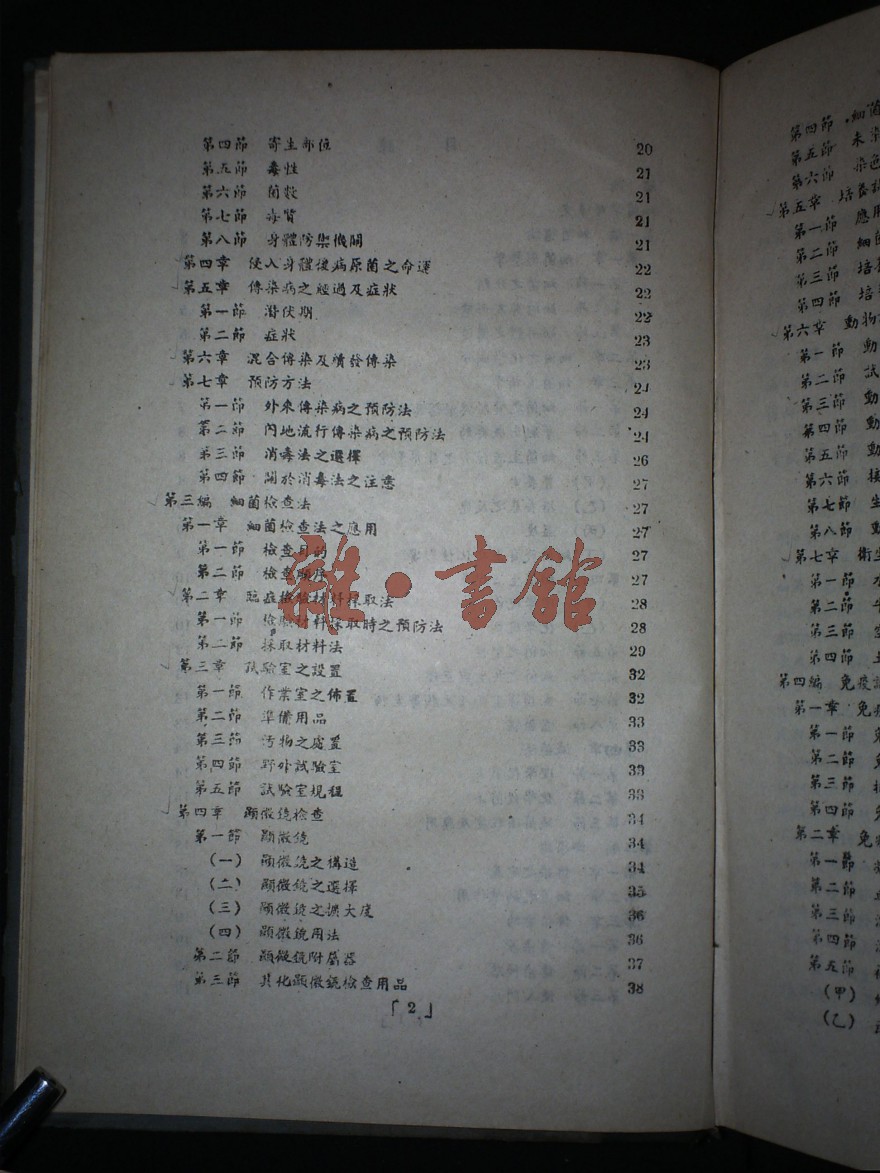 第四節 寄生部位 20
第五節 毒性 21
第六節 菌數 21
第七節 毒質 21
第八節 身體防禦機關 21
第四章 侵入身體後病原菌之命運 22
第五章 傳染病之經過及症狀 22
第一節 潛伏期 22
第二節 症狀 23
第六章 混合傳染及續發傳染 23
第七章 預防方法 24
第一節 外來傳染病之預防法 24
第二節 內地流行傳染病之預防法 24
第三節 消毒法之選擇 26
第四節 關於消毒法之注意 27
第三編 細菌檢查法 27
第一章 細菌檢查法之應用 27
第一節 檢查目的 27
第二節 檢查順序 27
第二章 臨症檢驗材料採取法 28
第一節 檢驗材料採取時之預防法 28
第二節 採取材料法 29
第三章 試驗室之設置 32
第一節 作業室之佈置 32
第二節 準備用品 33
第三節 汚物之處置 33
第四節 野外試驗室 33
第五節 試驗室規程 33
第四章 顯微鏡檢查 34
第一節 顯微鏡 34
(一) 顯微鏡之構造 34
(二) 顯微鏡之選擇 35
(三) 顯微鏡之擴大度 36
(四) 顯微鏡用法 36
第二節 顯微鏡附屬器 37
第三節 其他顯微鏡檢查用品 38
「2」
雜·書館
第四節 細菌
第五節 未染
第六節 染色
第五章 培養
第一節 應用
第二節 細菌
第三節 培
第四節 培
第六章 動物
第一節 動
第二節 試
第三節 動
第四節 動
第五節 動
第六節 接
第七節 生
第八節 動
第七章 衛生
第一節 水
第二節
第三節 空
第四節 土
第四編 免疫
第一章 免疫
第一節 免
第二節 免
第三節
第四節 免
第二章 免
第一節
第二節
第三節
第四節
第五節
(甲)
(乙)